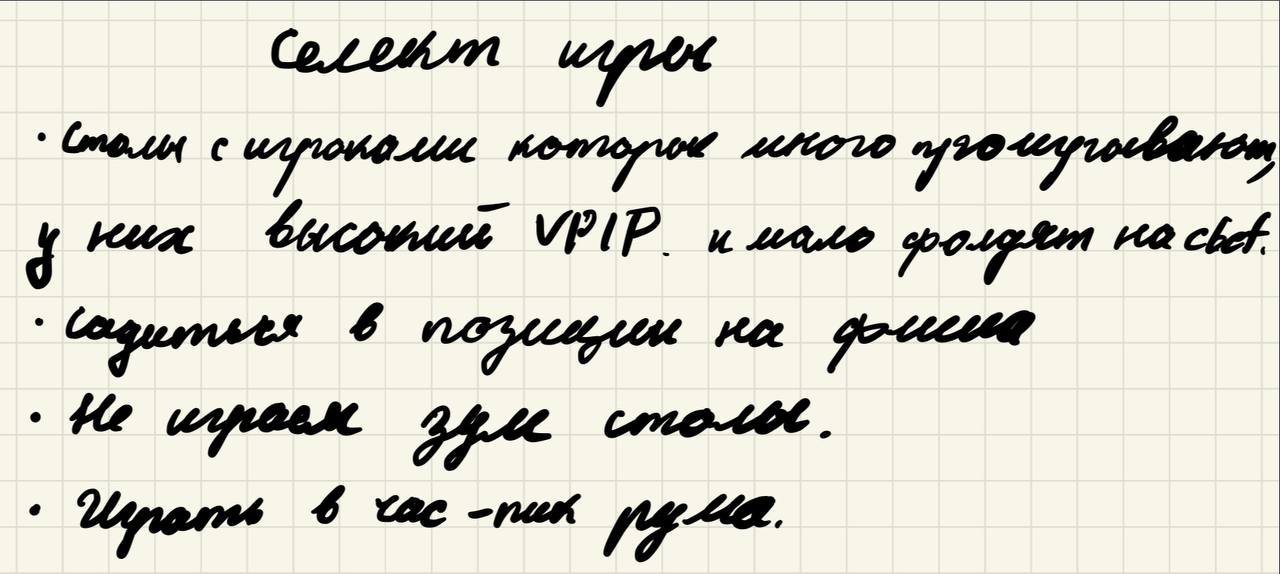 Селект игры
· Столы с игроками которые много проигрывают,
у них высокий VPIP. и мало фолдят на cbet.
· садиться в позиции на фиша
· Не играем зум столы.
· Играть в час-пик рума.